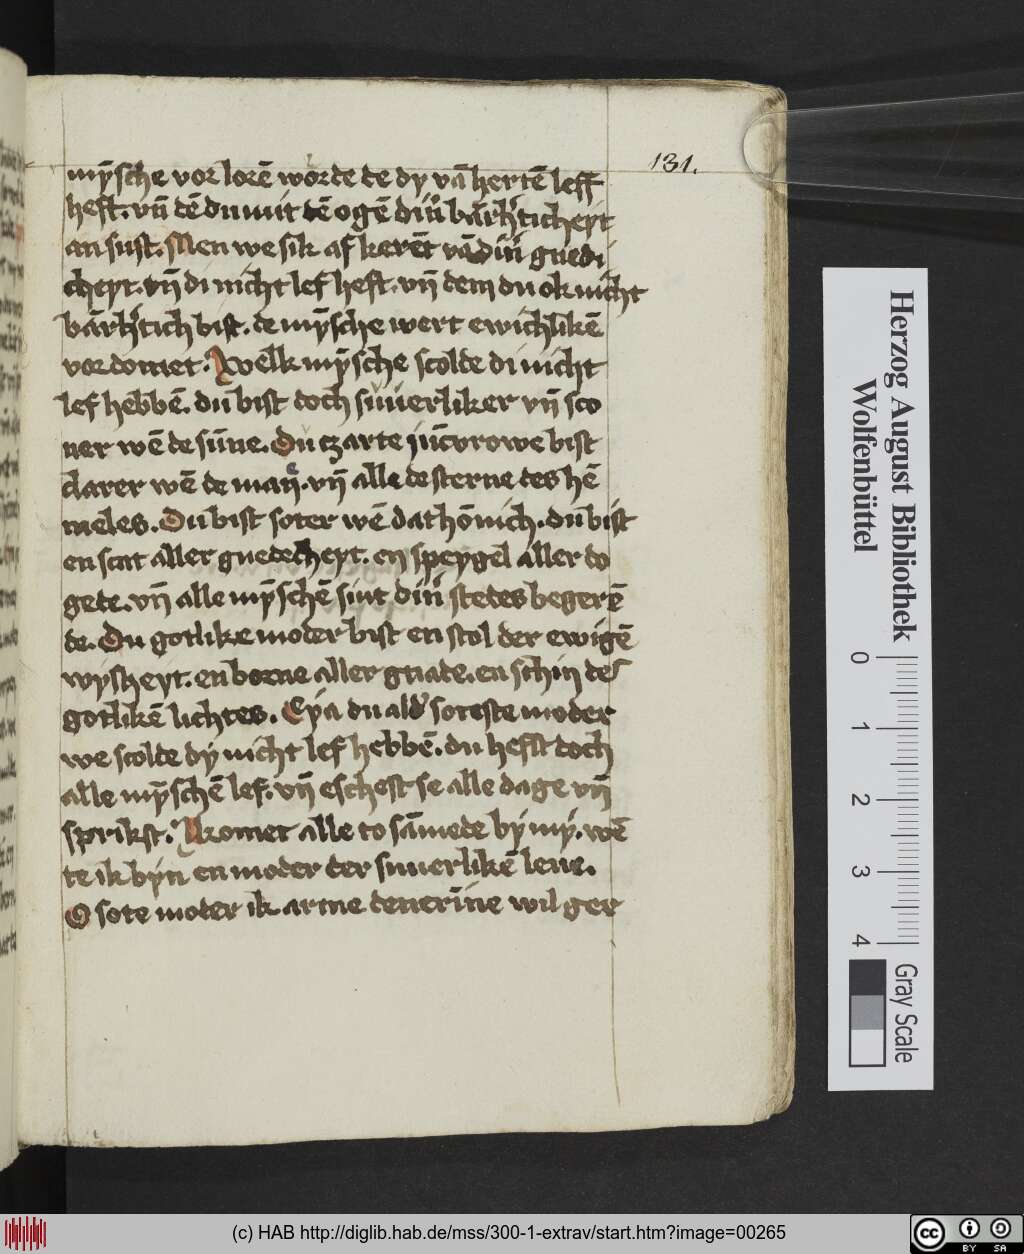 131.
mȳsche vor lorē wörde de dy vā hertē leff
heft. vn̄ dē du mit dē ogē din̄ barh'ticheyt
an sust. Men we sik af kerēt vā din̄ guedi
cheyt. vn̄ di nicht lef heft. vn̄ dem du ok nicht
bārh'tich bist. de mȳsche wert ewichlikē
vordomet. Welk mȳsche scolde di nicht
lef hebbē. du bist doch suuerliker vn̄ sco
ner wē de sūne. Du czarte jūcvrowe bist
clarer wē de man. vn̄ alle de sterne des hē
meles. Du bist soter wē dat hōnich. du bist
en scat aller guedecheyt. en speygel aller do
gete. vn̄ alle mȳschē sint din̄ stedes begerē
de. Du gotlike moder bist en stol der ewigē
wysheyt. en borne aller gnade. en schin des
gotlikē lichtes. Eya du alder soteste moder
we scolde dy nicht lef hebbē. du hefst doch
alle mȳschē lef. vn̄ eschest se alle dage vn̄
sprikst. Komet alle to sāmede by my. wē
te ik byn en moder der suuerlikē leue.
O sote moder ik arme denerīne wil ger
Herzog August Bibliothek
Wolfenbüttel
0 1 2 3 4
Gray Scale
(c) HAB http://diglib.hab.de/mss/300-1-extrav/start.htm?image=00265
cc BY SA